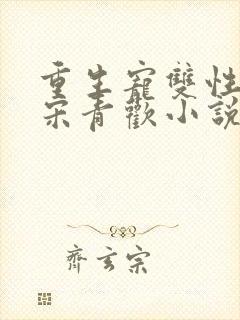 重生寵雙性
宋青歡小說
齊玄宗